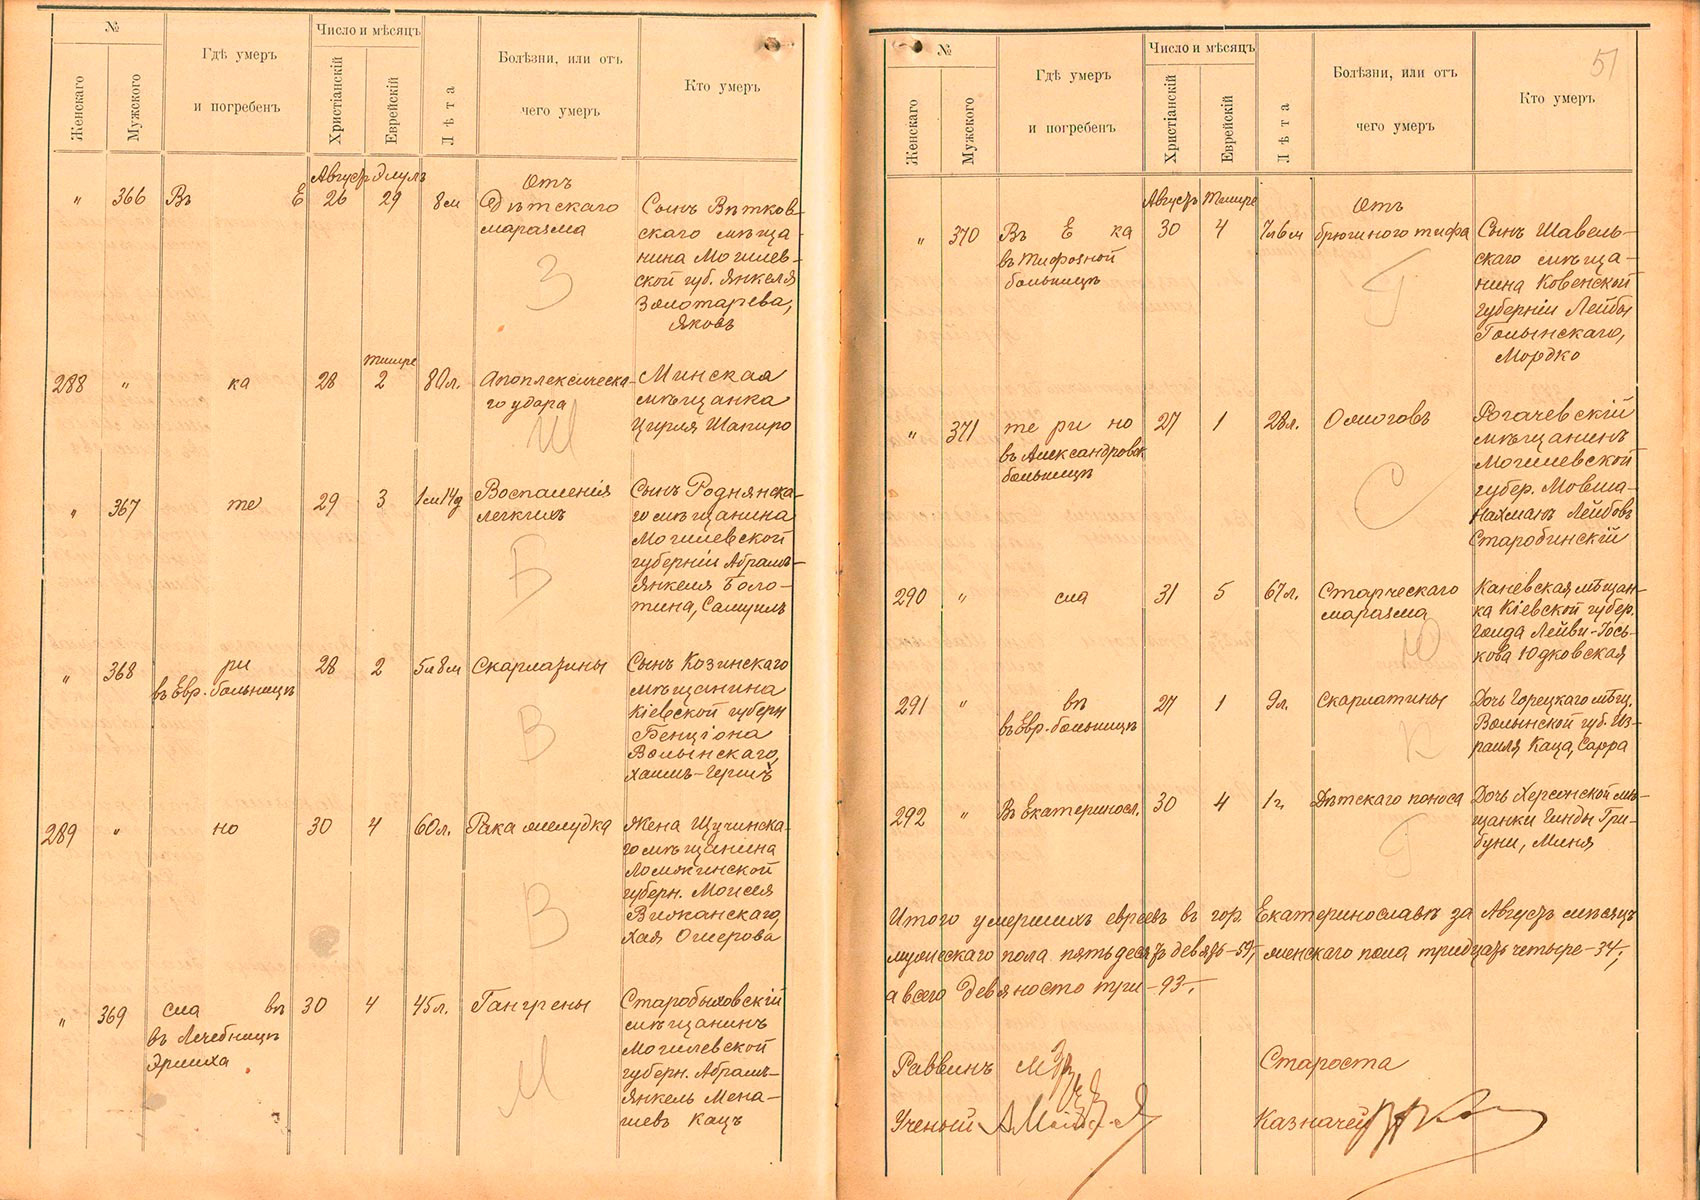 №
Женскаго
Мужского
Гдѣ умеръ
и погребенъ
Число и мѣсяцъ
Христіанскій
Еврейскій
Лѣта
Болѣзни, или отъ
чего умеръ
Кто умеръ
Августъ Элулъ
" 366 Въ Е 26 29 8 м
Отъ
Дѣтскаго
маразма
З
Сынъ Вѣтков-
скаго мѣща-
нина Могилев-
ской губ. Янкеля
Золотарева,
Яковъ
Тишре
288 " ка 28 2 80 л.
Апоплексическа-
го удара
Ш
Минская
мѣщанка
Цирля Шапиро
" 367 те 29 3 1 м 14 д
Воспаленія
легкихъ
Б
Сынъ Роднянска-
го мѣщанина
Могилевской
губерніи Абрамъ-
Янкеля Боло-
тина, Самуилъ
" 368 ри
въ Евр. больницѣ
28 2 5 л 8 м Скарлатины
В
Сынъ Козинскаго
мѣщанина
Кіевской губерн
Бенціона
Волынскаго,
Хаимъ-Гершъ
289 " но 30 4 60 л. Рака желудка
В
Жена Щучинска-
го мѣщанина
Ломжинской
губерн. Моисея
Вижанскаго,
Хая Ошерова
" 369 сла вѣ
въ Лечебницѣ
Эрлиха
30 4 45 л. Гангрены
М
Старобыховскій
мѣщанинъ
Могилевской
губерн. Абрамъ-
Янкель Мена-
шевъ Кацъ
51
№
Женскаго
Мужского
Гдѣ умеръ
и погребенъ
Число и мѣсяцъ
Христіанскій
Еврейскій
Лѣта
Болѣзни, или отъ
чего умеръ
Кто умеръ
Августъ Тишре
" 370 Въ Е ка
въ тифозной
больницѣ
30 4 7 л 6 м
Отъ
брюшного тифа
Г
Сынъ Шавель-
скаго мѣща-
нина Ковенской
губерніи Лейбы
Голынскаго,
Мордко
" 371 те ри но
въ Александровск
больницѣ
27 1 28 л. Ожоговъ
С
Рогачевскій
мѣщанинъ
Могилевской
губер. Мовша-
Нахманъ Лейбовъ
Старобинскій
290 " сла 31 5 67 л.
Старческаго
маразма
Ю
Каневская мѣщан-
ка Кіевской губер.
Голда Лейви-Іось-
кова Юдковская
291 " вѣ
въ Евр. больницѣ
27 1 9 л. Скарлатины
К
Дочь Горецкаго мѣщ.
Волынской губ. Из-
раиля Каца, Сарра
292 " Въ Екатериносл. 30 4 1 г. Дѣтскаго поноса
Г
Дочь Херсонской мѣ-
щанки Гинды Гри-
буни, Миня
Итого умершихъ евреевъ въ гор. Екатеринославѣ за Августъ мѣсяцъ
мужескаго пола пятьдесятъ девять - 59, женскаго пола тридцать четыре - 34,
а всего девяносто три - 93.
Раввинъ
Староста
Ученый
Казначей